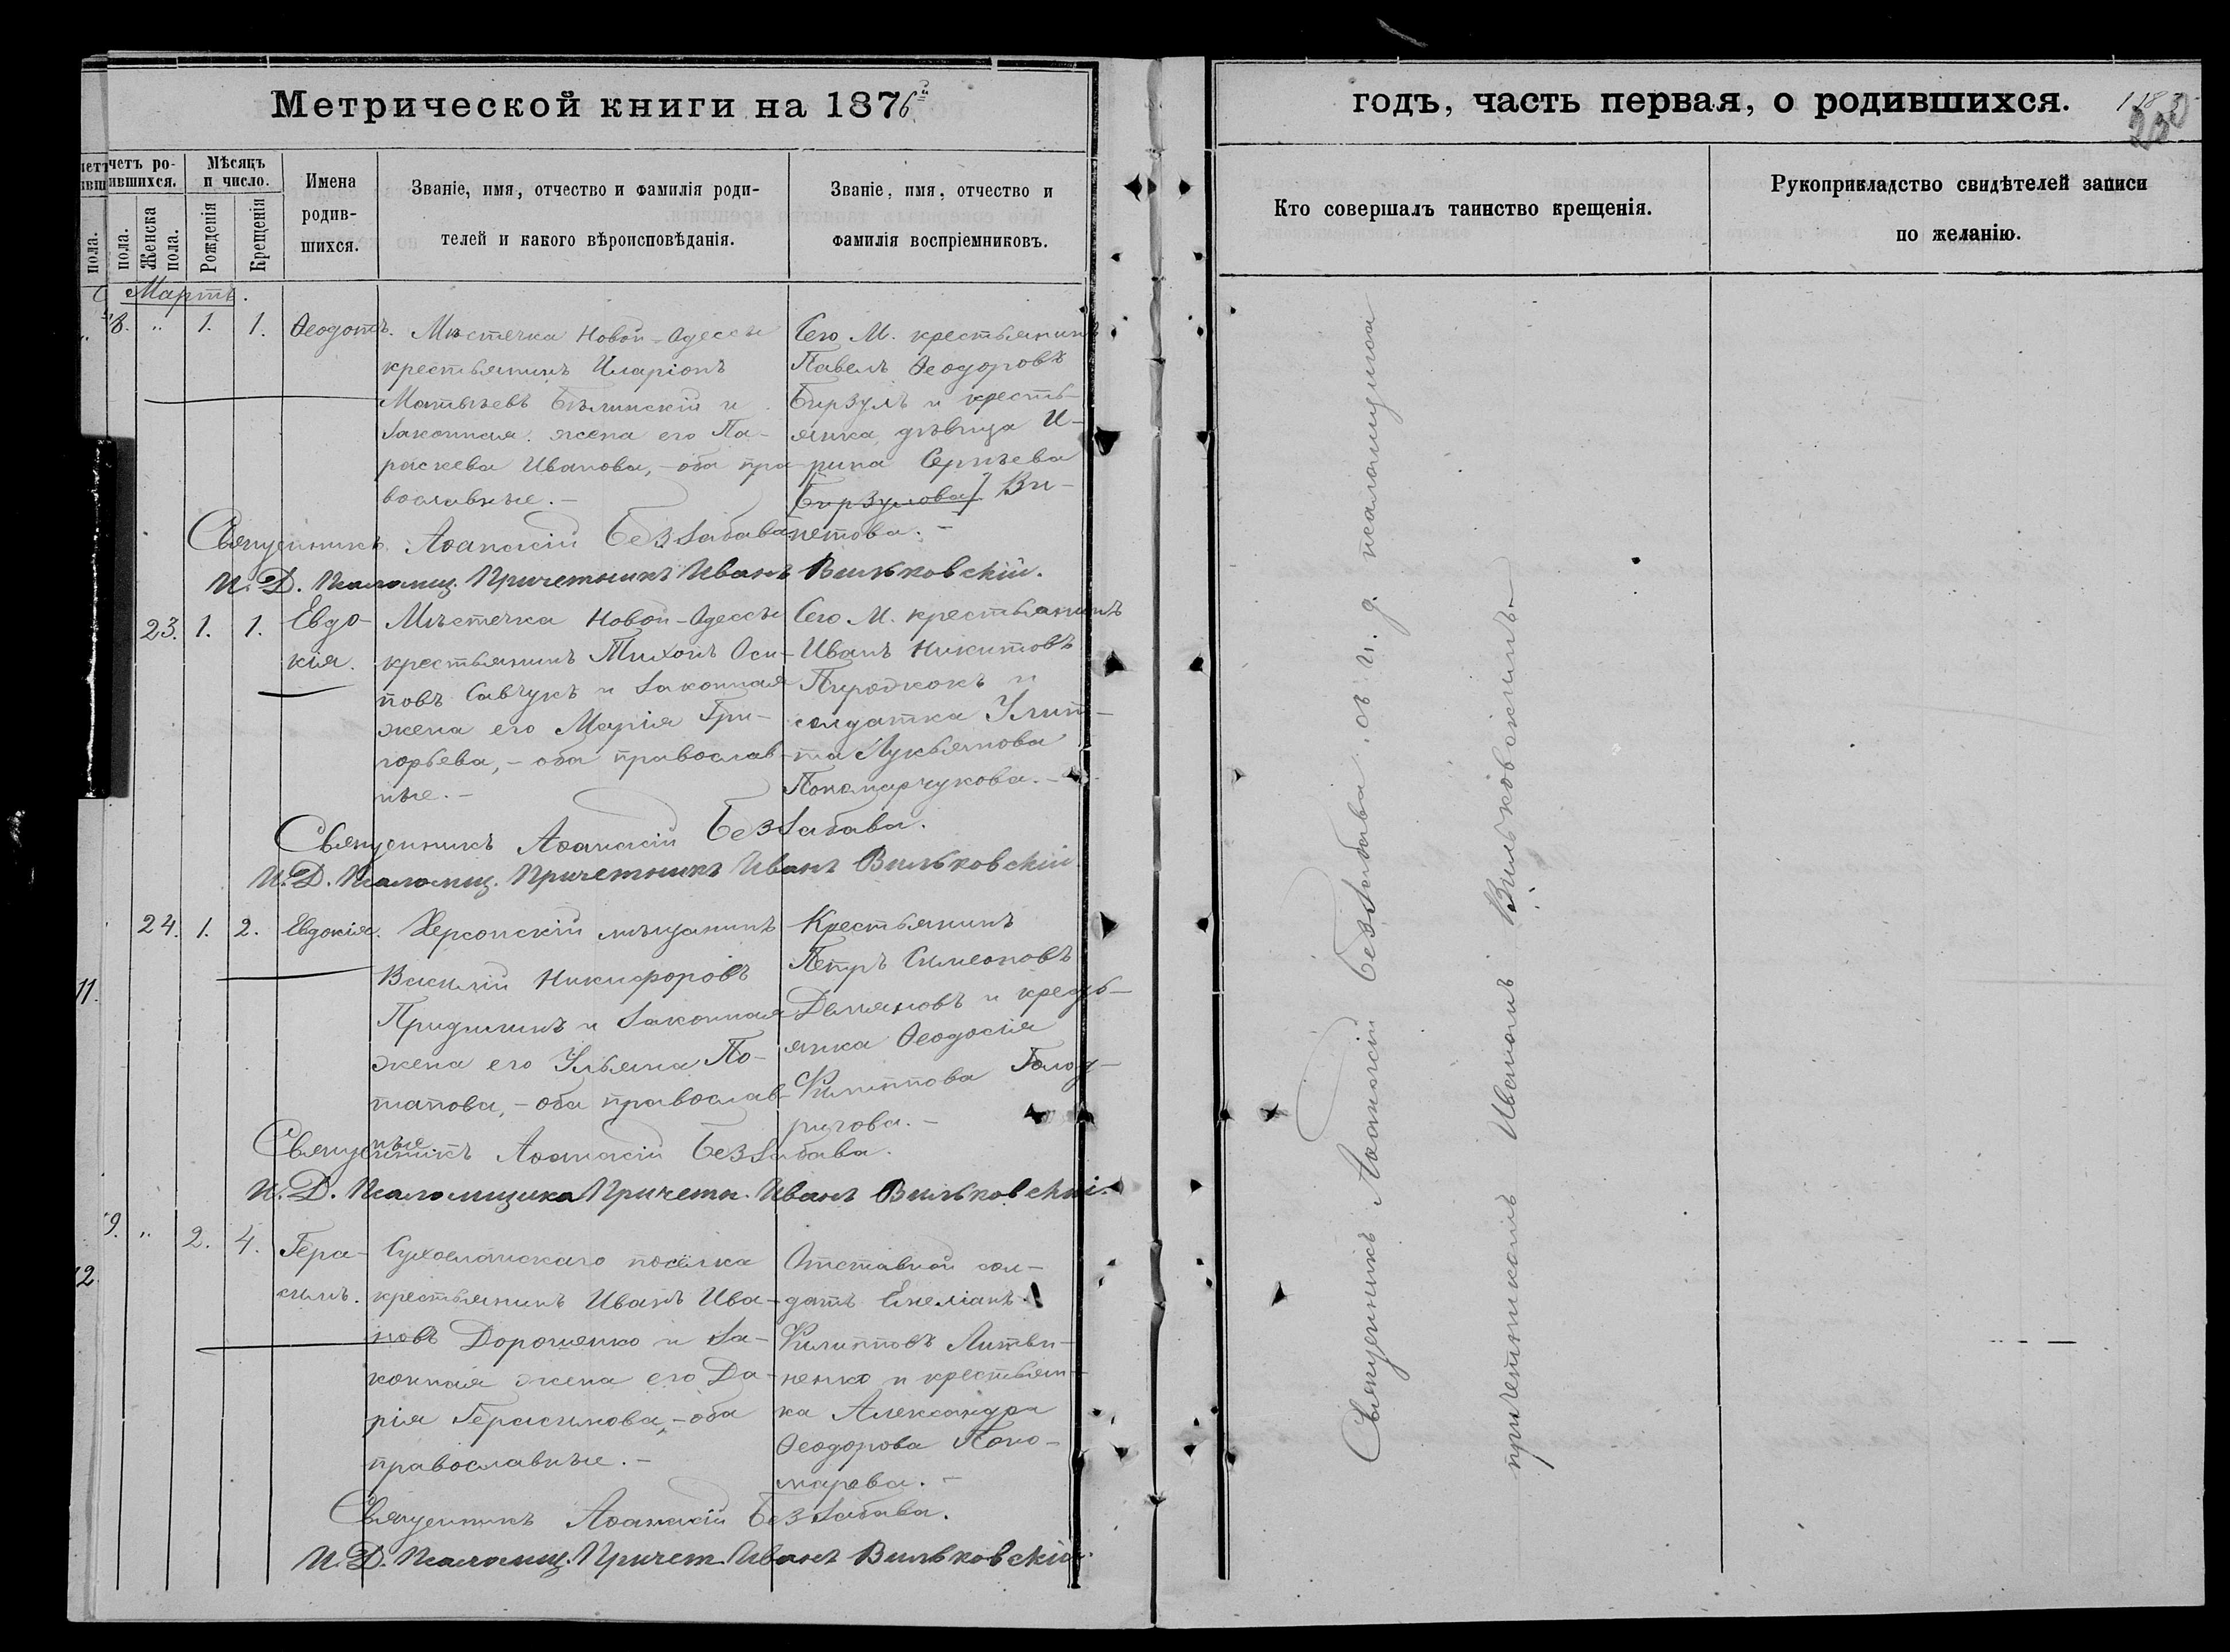 Метрической книги на 1876й
годъ, часть первая, о родившихся.
четъ ро-
ившихся.
Мѣсяцъ
и число.
пола.
пола.
Женска
пола.
Рожденія
Крещенія
Имена
родив-
шихся.
Званіе, имя, отчество и фамилія роди-
телей и какого вѣроисповѣданія.
Званіе, имя, отчество и
фамилія воспріемниковъ.
Кто совершалъ таинство крещенія.
Рукоприкладство свидѣтелей записи
по желанію.
Мартъ.
8. „ 1. 1. Ѳеодотъ.
Мѣстечка Новой-Одессы
крестьянинъ Иларіонъ
Матвѣевъ Бѣлинскій и
законная жена его Па-
раскева Иванова,- оба пра-
вославные.-
Сего М. крестьянинъ
Павелъ Ѳеодоровъ
Бирзулъ и кресть-
янка, дѣвица И-
рина Сергѣева
[Бирзулова] Ви-
нетова.-
Священникъ Аѳанасій Беззабава
И. Д. Псаломщ. Причетникъ Иванъ Вильковскій.
23. 1. 1. Евдо-
кія.
Мѣстечка Новой-Одессы
крестьянинъ Тихонъ Оси-
повъ Савчукъ и законная
жена его Марія Гри-
горьева,- оба православ-
ные.-
Сего М. крестьянинъ
Иванъ Никитовъ
Пирожокъ и
солдатка Улит-
та Лукьянова
Пономарчукова.-
Священникъ Аѳанасій Беззабава.
И. Д. Псаломщ. Причетникъ Иванъ Вильковскій
24. 1. 2. Евдокія.
Херсонскій мѣщанинъ
Василій Никифоровъ
Придилинъ и законная
жена его Ульяна По-
тапова,- оба православ-
ные
Крестьянинъ
Петръ Симеоновъ
Демяновъ и кресть-
янка Ѳеодосія
Филиппова Голод-
ригова.-
Священникъ Аѳанасій Беззабава.
И. Д. Псаломщика Причетн. Иванъ Вильковскій.
11.
12
9. „ 2. 4. Гера-
симъ.
Сухоеланскаго посёлка
крестьянинъ Иванъ Ива-
новъ Дорошенко и за-
конная жена его Да-
рія Герасимова,- оба
православные.-
Отставной сол-
датъ Емеліанъ
Филипповъ Литви-
ненко и крестьян-
ка Александра
Ѳеодорова Поно-
марева.-
Священникъ Аѳанасій Беззабава.
И. Д. Псаломщ. Причет. Иванъ Вильковскій.
Священникъ Аѳанасій Беззабава съ и. д. псаломщика
причетникомъ Иваномъ Вильковскимъ.